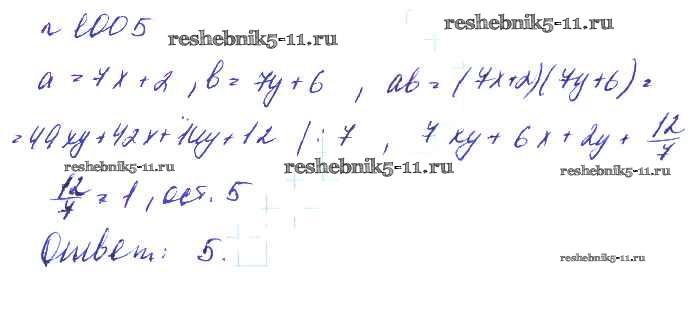 № 1005
reshebnik5-11.ru reshebnik5-11.ru
a = 7x + 2, b = 7y + 6, ab = (7x+2)(7y+6) =
= 49xy + 42x + 14y + 12 | : 7, 7xy + 6x + 2y + 12/7
reshebnik5-11.ru reshebnik5-11.ru reshebnik5-11.ru
12/7 = 1, ост. 5
Ответ: 5.
reshebnik5-11.ru